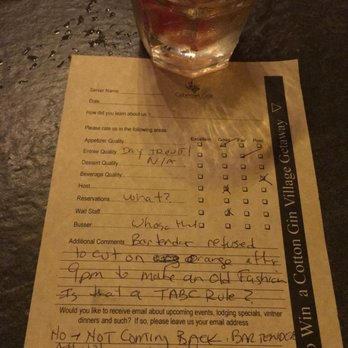 Server Name
Date
How did you learn about us
Please rate us in the following areas:
Excellent Good Fair Poor
Appetizer Quality
Entree Quality Dry Trout!
Dessert Quality N/A
Beverage Quality
Host
Reservations what?
Wait Staff
Busser Whose that
Additional Comments Bartender refused
to cut an orange after
9pm to make an Old Fashion
Is that a TABC Rule?
Would you like to receive email about upcoming events, lodging specials, vintner
dinners and such? If so, please leave us your email address
No → Not Coming Back. Bartender
to Win a Cotton Gin Village Getaway